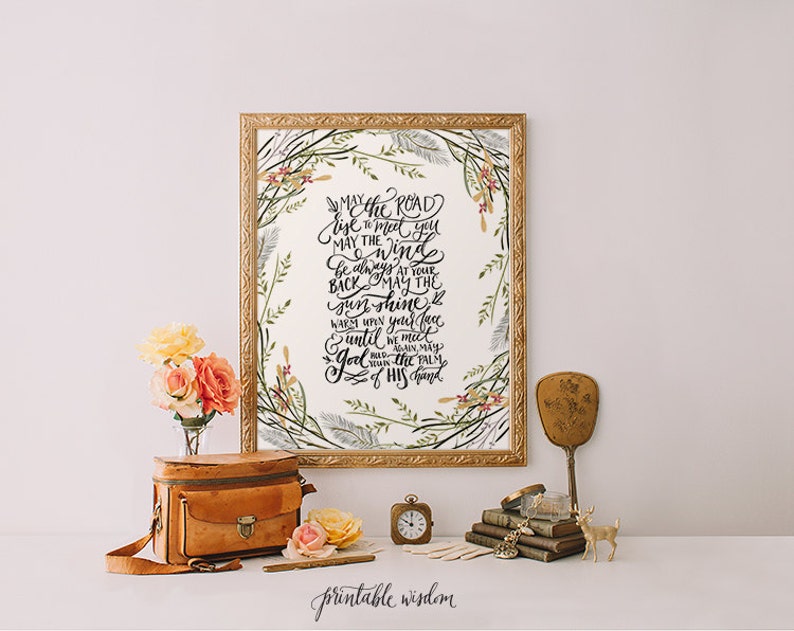 MAY the ROAD
rise to meet you
MAY THE wind
be always AT YOUR
BACK MAY THE
sun shine
WARM UPON your face
& until WE MEET
AGAIN, MAY
God HOLD YOU IN the PALM
of HIS hand
printable wisdom